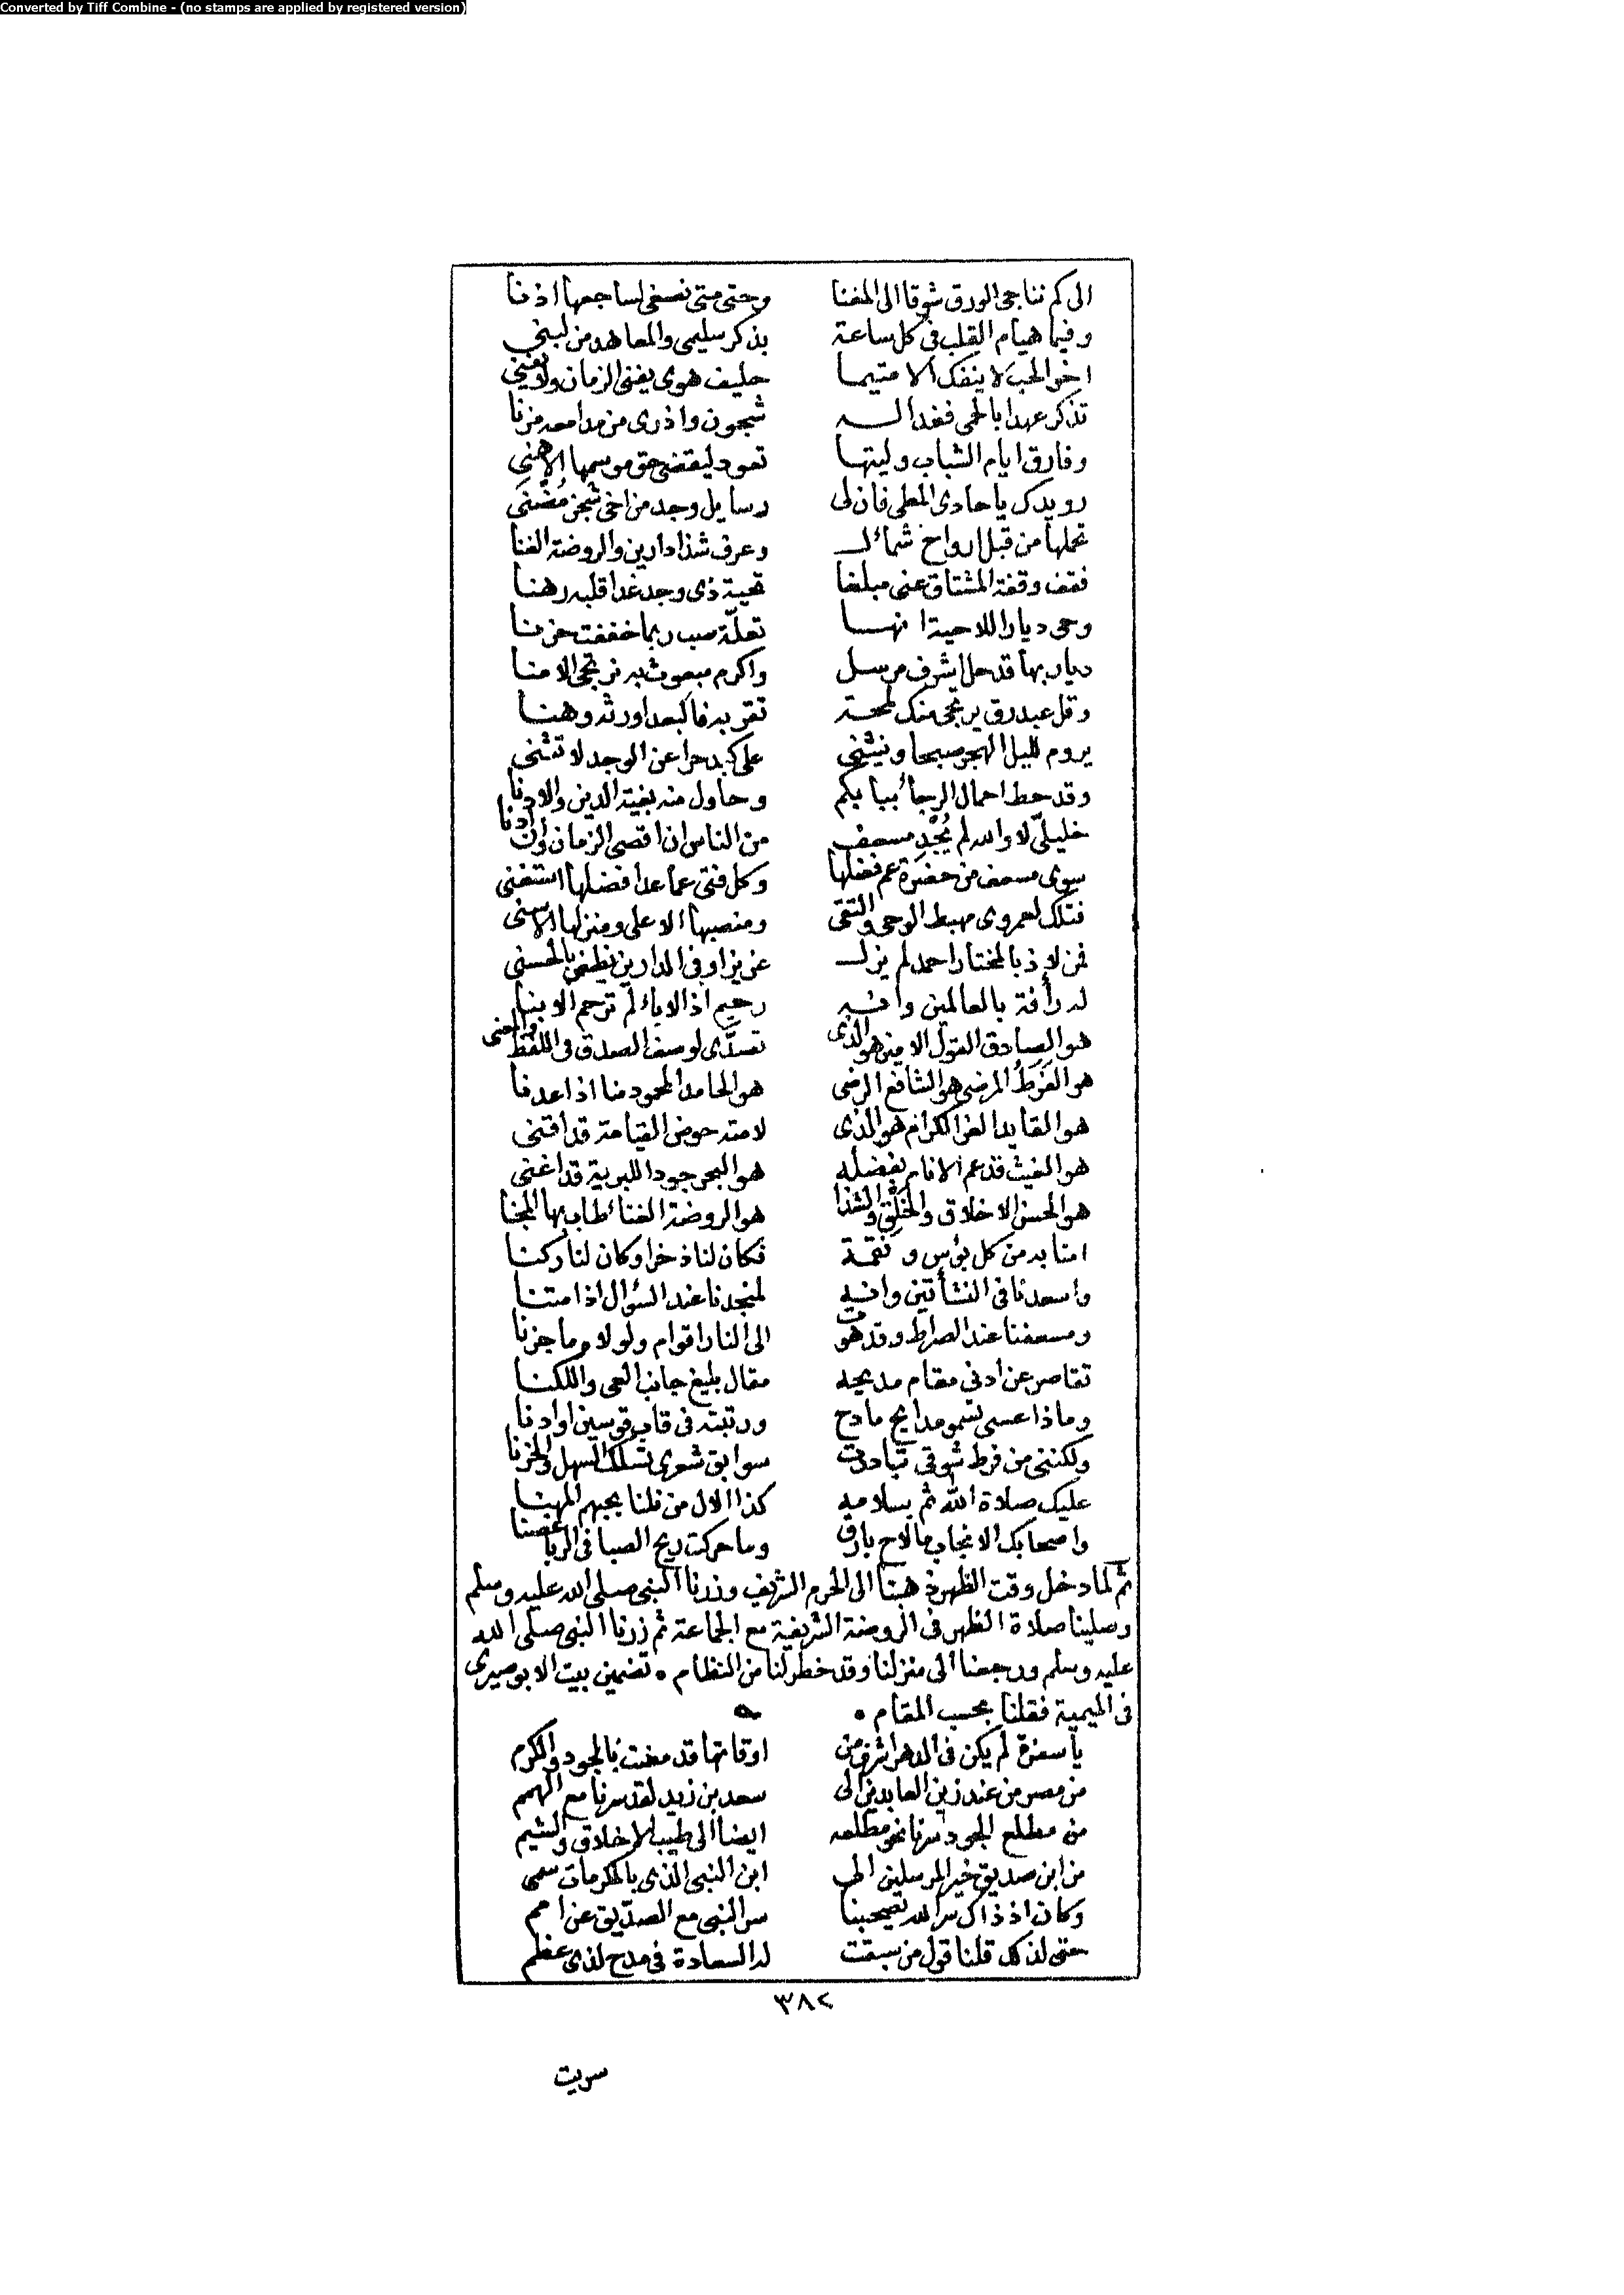 Converted by Tiff Combine - (no stamps are applied by registered version)
الى كم نناجى الورق شوقا الى المغنا وحتى متى نصغى لساجعها اذنا
وفيما هيام القلب فى كل ساعة بذكر سليمى والمعاهد من لبنى
اخو الحب لا ينفك الا متيما حليف هوى يفنى الزمان ولا يفنى
تذكر عهدا بالحمى فغدا له شجون واذرى من مدامعه مزنا
وفارق ايام الشباب وليتها تعود ليقضى حق موسمها الاهنى
رويدك يا حادى المطى فان لى رسايل وجد من اخى شجن مضنى
تحملها من قبل ارواح شمائل وعرف شذا دارين والروضة الغنا
فقف وقفة المشتاق عنى مبلغا تحية ذى وجد غدا قلبه رهنا
وحى ديارا للاحبة انها تعلة صب ربما خففت حزنا
ديار بها قد حل اشرف مرسل واكرم مبعوث به نرتجى الامنا
وقل عبد رق يرتجى منك لمحة تقربه فالبعد اورثه وهنا
يروم لليل الهجر صبحا وينثنى على كبد حرا عن الوجد لا تثنى
وقد حط احمال الرجاء ببابكم وحاول منه بغية الدين والادنا
خليلى لا والله لم يجد مسعف من الناس ان اقصى الزمان وان ادنا
سوى مسعف من حضرة عم فضلها وكل فتى عما عدا فضلها استغنى
فتلك لعمرى مهبط الوحى والتقى ومنصبها الاعلى ومنزلها الاسنى
فمن لاذ بالمختار احمد لم يزل عزيزا وفى الدارين يظفر بالحسنى
له رأفة بالعالمين وانه رحيم اذ الاباء لم ترحم الابنا
هو الصادق القول الامين هو الذى تصدى لوصف الصدق فى اللفظ والمعنى
هو الفرط المرضى هو الشافع الرضى هو الحامد المحمود منا اذا عدنا
هو القايد الغر الكرام هو الذى لامته حوض القيامة قد اقنى
هو الغيث قد عم الانام بفضله هو البحر جودا للبرية قد اغنى
هو الحسن الاخلاق والخلق والشذا هو الروضة الغناء طاب بها المجنا
امنا به من كل بؤس ونقمة فكان لنا ذخرا وكان لنا ركنا
واسعدنا فى النشأتين وانه لمنجدنا عند السؤال اذا متنا
ومسعفنا عند الصراط وقد هوت الى النار اقوام ولولاه ما جزنا
تقاصر عن ادنى مقام مديحه مقال بليغ جانب العى واللكنا
وماذا عسى تسمو مدايح مادح ورتبته فى قاب قوسين او ادنا
ولكننى من فرط شوقى تبادرت سوابق شعرى تسلك السهل والحزنا
عليك صلاة الله ثم سلامه كذا الال من نلنا بحبهم المهنا
واصحابك الانجاب ما لاح بارق وما حركت ريح الصبا فى الربا غصنا
ثم لما دخل وقت الظهر ذهبنا الى الحرم الشريف وزرنا النبى صلى الله عليه وسلم
وصلينا صلاة الظهر فى الروضة الشريفة مع الجماعة ثم زرنا النبى صلى الله
عليه وسلم ورجعنا الى منزلنا وقد خطر لنا من النظام • تضمين بيت الابوصيرى
فى الميمية فقلنا بحسب المقام •
يا سفرة لم يكن فى الدهر اشرف من اوقاتها قد مضت بالجود والكرم
من مصر من عند زين العابدين الى سعد بن زيد لقد سرنا مع الهمم
من مطلع الجود سرنا نحو مطلعه ايضا الى طيب الاخلاق والشيم
من ابن صديق خير المرسلين الى ابن النبى الذى بالمكرمات سمى
وكان اذ ذاك سر الله يصحبنا سر النبى مع الصديق عن امم
حتى لذلك قلنا قول من سبقت له السعادة فى مدح لذى عظم
٣٨٢
سريت